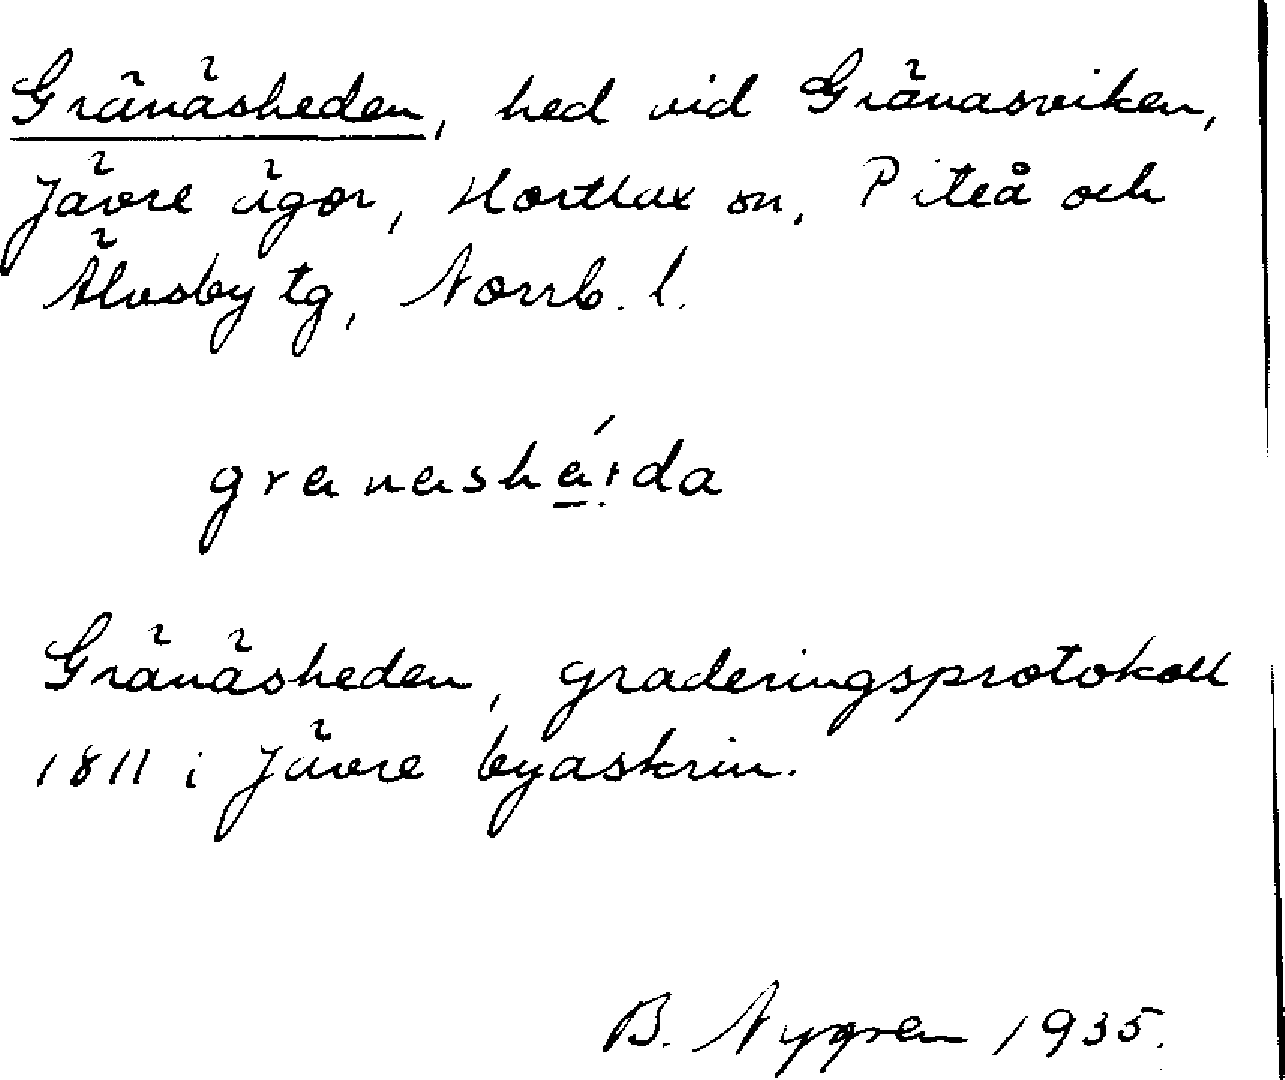 Gränäsheden, hed vid Gränäsviken,
Jävre ägor, Hortlax sn, Piteå och
Älvsby tg, Norrb. l.
granashéda
Gränäsheden, graderingsprotokoll
1811 i Jävre byaskrin.
B. Nygren 1935.